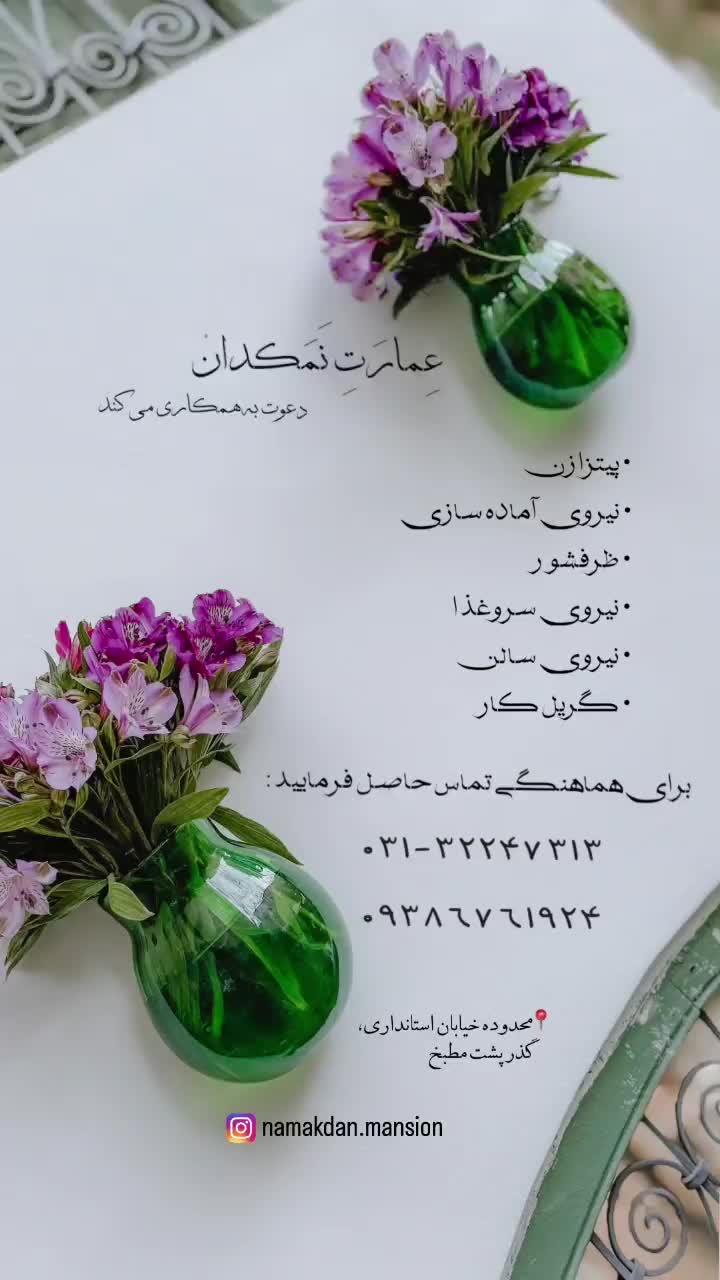 عِمارَتِ نَمَکدان
دعوت به همکاری می کند
• پیتزازن
• نیروی آماده سازی
• ظرفشور
• نیروی سروغذا
• نیروی سالن
• گریل کار
برای هماهنگی تماس حاصل فرمایید :
۰۳۱-۳۲۲۴۷۳۱۳
۰۹۳۸۶۷۶۱۹۲۴
محدوده خیابان استانداری،
گذر پشت مطبخ
namakdan.mansion